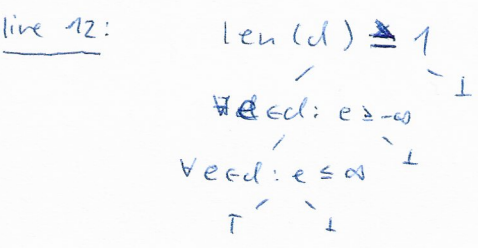 line 12: len(d) ≥ 1
⊥
∀e∈d: e ≥ -∞
⊥
∀e∈d: e ≤ ∞
⊤ ⊥